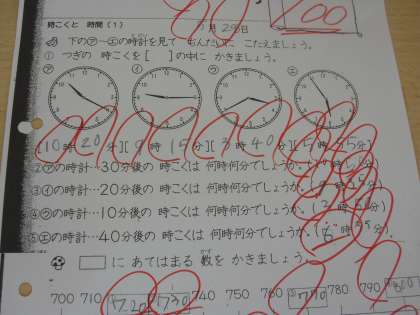 時こくと 時間(1)
月 29日
100
下の㋐〜㋓の時計を見て もんだいに こたえましょう。
① つぎの 時こくを[ ]の中に かきましょう。
㋐ ㋑ ㋒ ㋓
[10時20分][9時15分][3時40分][5時55分]
②㋐の時計…30分後の 時こくは 何時何分でしょうか。
③㋑の時計…20分後の 時こくは 何時何分でしょうか。
④㋒の時計…10分後の 時こくは 何時何分でしょうか。
⑤㋓の時計…40分後の 時こくは 何時何分でしょうか。
に あてはまる 数を かきましょう。
700 710 720 730 740 750 760 770 780 790